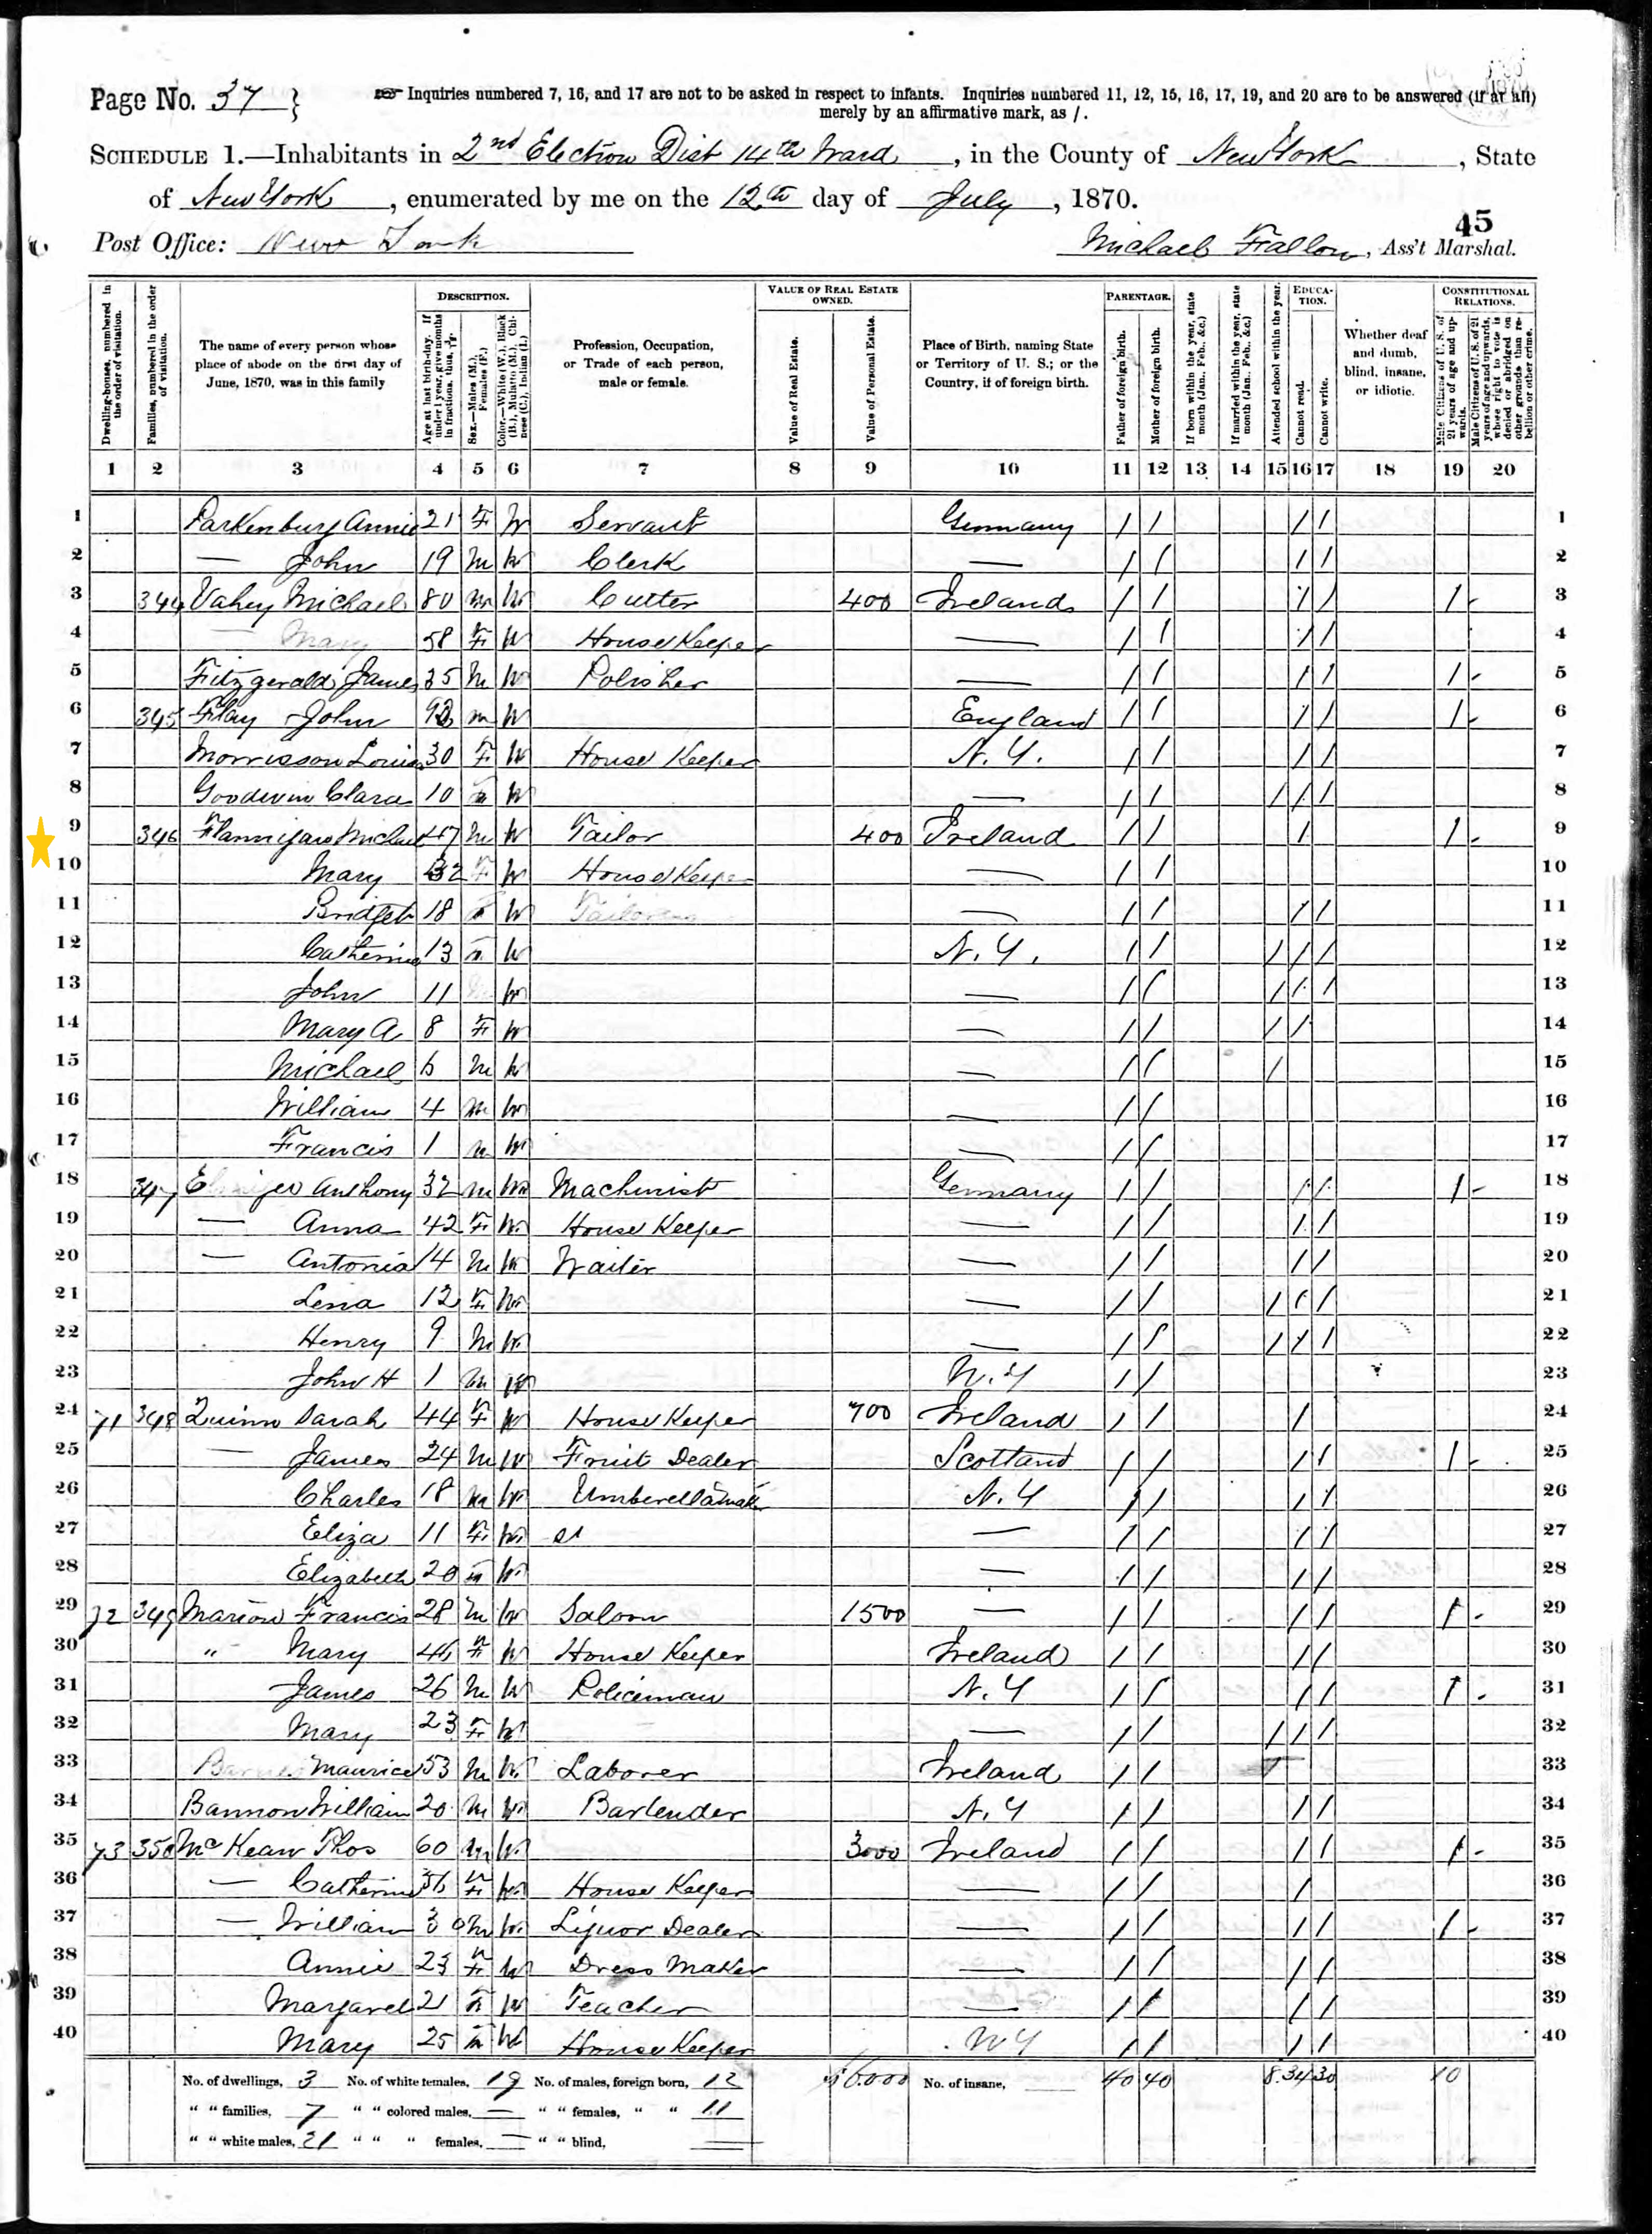 Page No. 37 } Inquiries numbered 7, 16, and 17 are not to be asked in respect to infants. Inquiries numbered 11, 12, 15, 16, 17, 19, and 20 are to be answered (if at all)
merely by an affirmative mark, as /.
SCHEDULE 1.—Inhabitants in 2nd Election Dist 14th Ward, in the County of New York, State
of New York, enumerated by me on the 12th day of July, 1870.
45
Post Office: New York Michael Fallon, Ass't Marshal.
Dwelling-houses, numbered in the order of visitation.
Families, numbered in the order of visitation.
The name of every person whose place of abode on the first day of June, 1870, was in this family
DESCRIPTION.
Age at last birth-day. If under 1 year, give months in fractions, thus, 3/12.
Sex.—Males (M.), Females (F.)
Color.—White (W.), Black (B.), Mulatto (M.), Chinese (C.), Indian (I.)
Profession, Occupation, or Trade of each person, male or female.
VALUE OF REAL ESTATE OWNED.
Value of Real Estate.
Value of Personal Estate.
Place of Birth, naming State or Territory of U. S.; or the Country, if of foreign birth.
PARENTAGE.
Father of foreign birth.
Mother of foreign birth.
If born within the year, state month (Jan., Feb., &c.)
If married within the year, state month (Jan., Feb., &c.)
Attended school within the year.
EDUCATION.
Cannot read.
Cannot write.
Whether deaf and dumb, blind, insane, or idiotic.
CONSTITUTIONAL RELATIONS.
Male Citizens of U. S. of 21 years of age and upwards.
Male Citizens of U. S. of 21 years of age and upwards, whose right to vote is denied or abridged on other grounds than rebellion or other crime.
1 2 3 4 5 6 7 8 9 10 11 12 13 14 15 16 17 18 19 20
1 Parkenburg Annie 21 F W Servant Germany / / / / 1
2 — John 19 M W Clerk — / / / / 2
3 344 Vahey Michael 80 M W Cutter 400 Ireland / / / / / 3
4 — Mary 58 F W House Keeper — / / / / 4
5 Fitzgerald James 35 M W Polisher — / / / / / 5
6 345 John M W England / / / / / 6
7 Morrisson Louisa 30 F W House Keeper N.Y. / / / / 7
8 Goodwin Clara 10 F W — / / / / / 8
9 346 Flannigan Michael 47 M W Tailor 400 Ireland / / / / 9
10 Mary F W House Keeper — / / 10
11 Bridget 18 F W — / / / / 11
12 Catherine 13 F W N.Y. / / / / / 12
13 John 11 M W — / / / / / 13
14 Mary A 8 F W — / / / / 14
15 Michael 6 M W — / / / 15
16 William 4 M W — / / 16
17 Francis 1 M W — / / 17
18 347 Anthony 32 M W Machinist Germany / / / / / 18
19 — Anna 42 F W House Keeper — / / / / 19
20 — Antonia 14 M W Waiter — / / / / 20
21 Lena 12 F W — / / / / / 21
22 Henry 9 M W — / / / / / 22
23 John H 1 M W N.Y / / 23
24 71 348 Quinn Sarah 44 F W House Keeper 700 Ireland / / / 24
25 — James 24 M W Fruit Dealer Scotland / / / / / 25
26 Charles 18 M W N.Y / / / / 26
27 Eliza 11 F W — / / / / 27
28 Elizabeth 20 F W — / / / / 28
29 72 349 Marion Francis 28 M W Saloon 1500 — / / / / / 29
30 " Mary 46 F W House Keeper Ireland / / / / 30
31 James 26 M W Policeman N.Y / / / / / 31
32 Mary 23 F W — / / / / / 32
33 Maurice 53 M W Laborer Ireland / / 33
34 Bannon William 20 M W Bartender N.Y / / / / 34
35 73 350 McKean Thos 60 M W 3000 Ireland / / / / / 35
36 — Catherine F W House Keeper — / / / 36
37 — William 30 M W Liquor Dealer — / / / / / 37
38 Annie 23 F W Dress Maker — / / / / 38
39 Margaret 21 F W Teacher — / / / / 39
40 Mary 25 F W House Keeper N Y / / / / 40
No. of dwellings, 3 No. of white females, 19 No. of males, foreign born, 12 No. of insane, 40 40 8 34 30 10
" " families, 7 " " colored males, — " " females, " " 11
" " white males, 21 " " " females, — " " blind, —